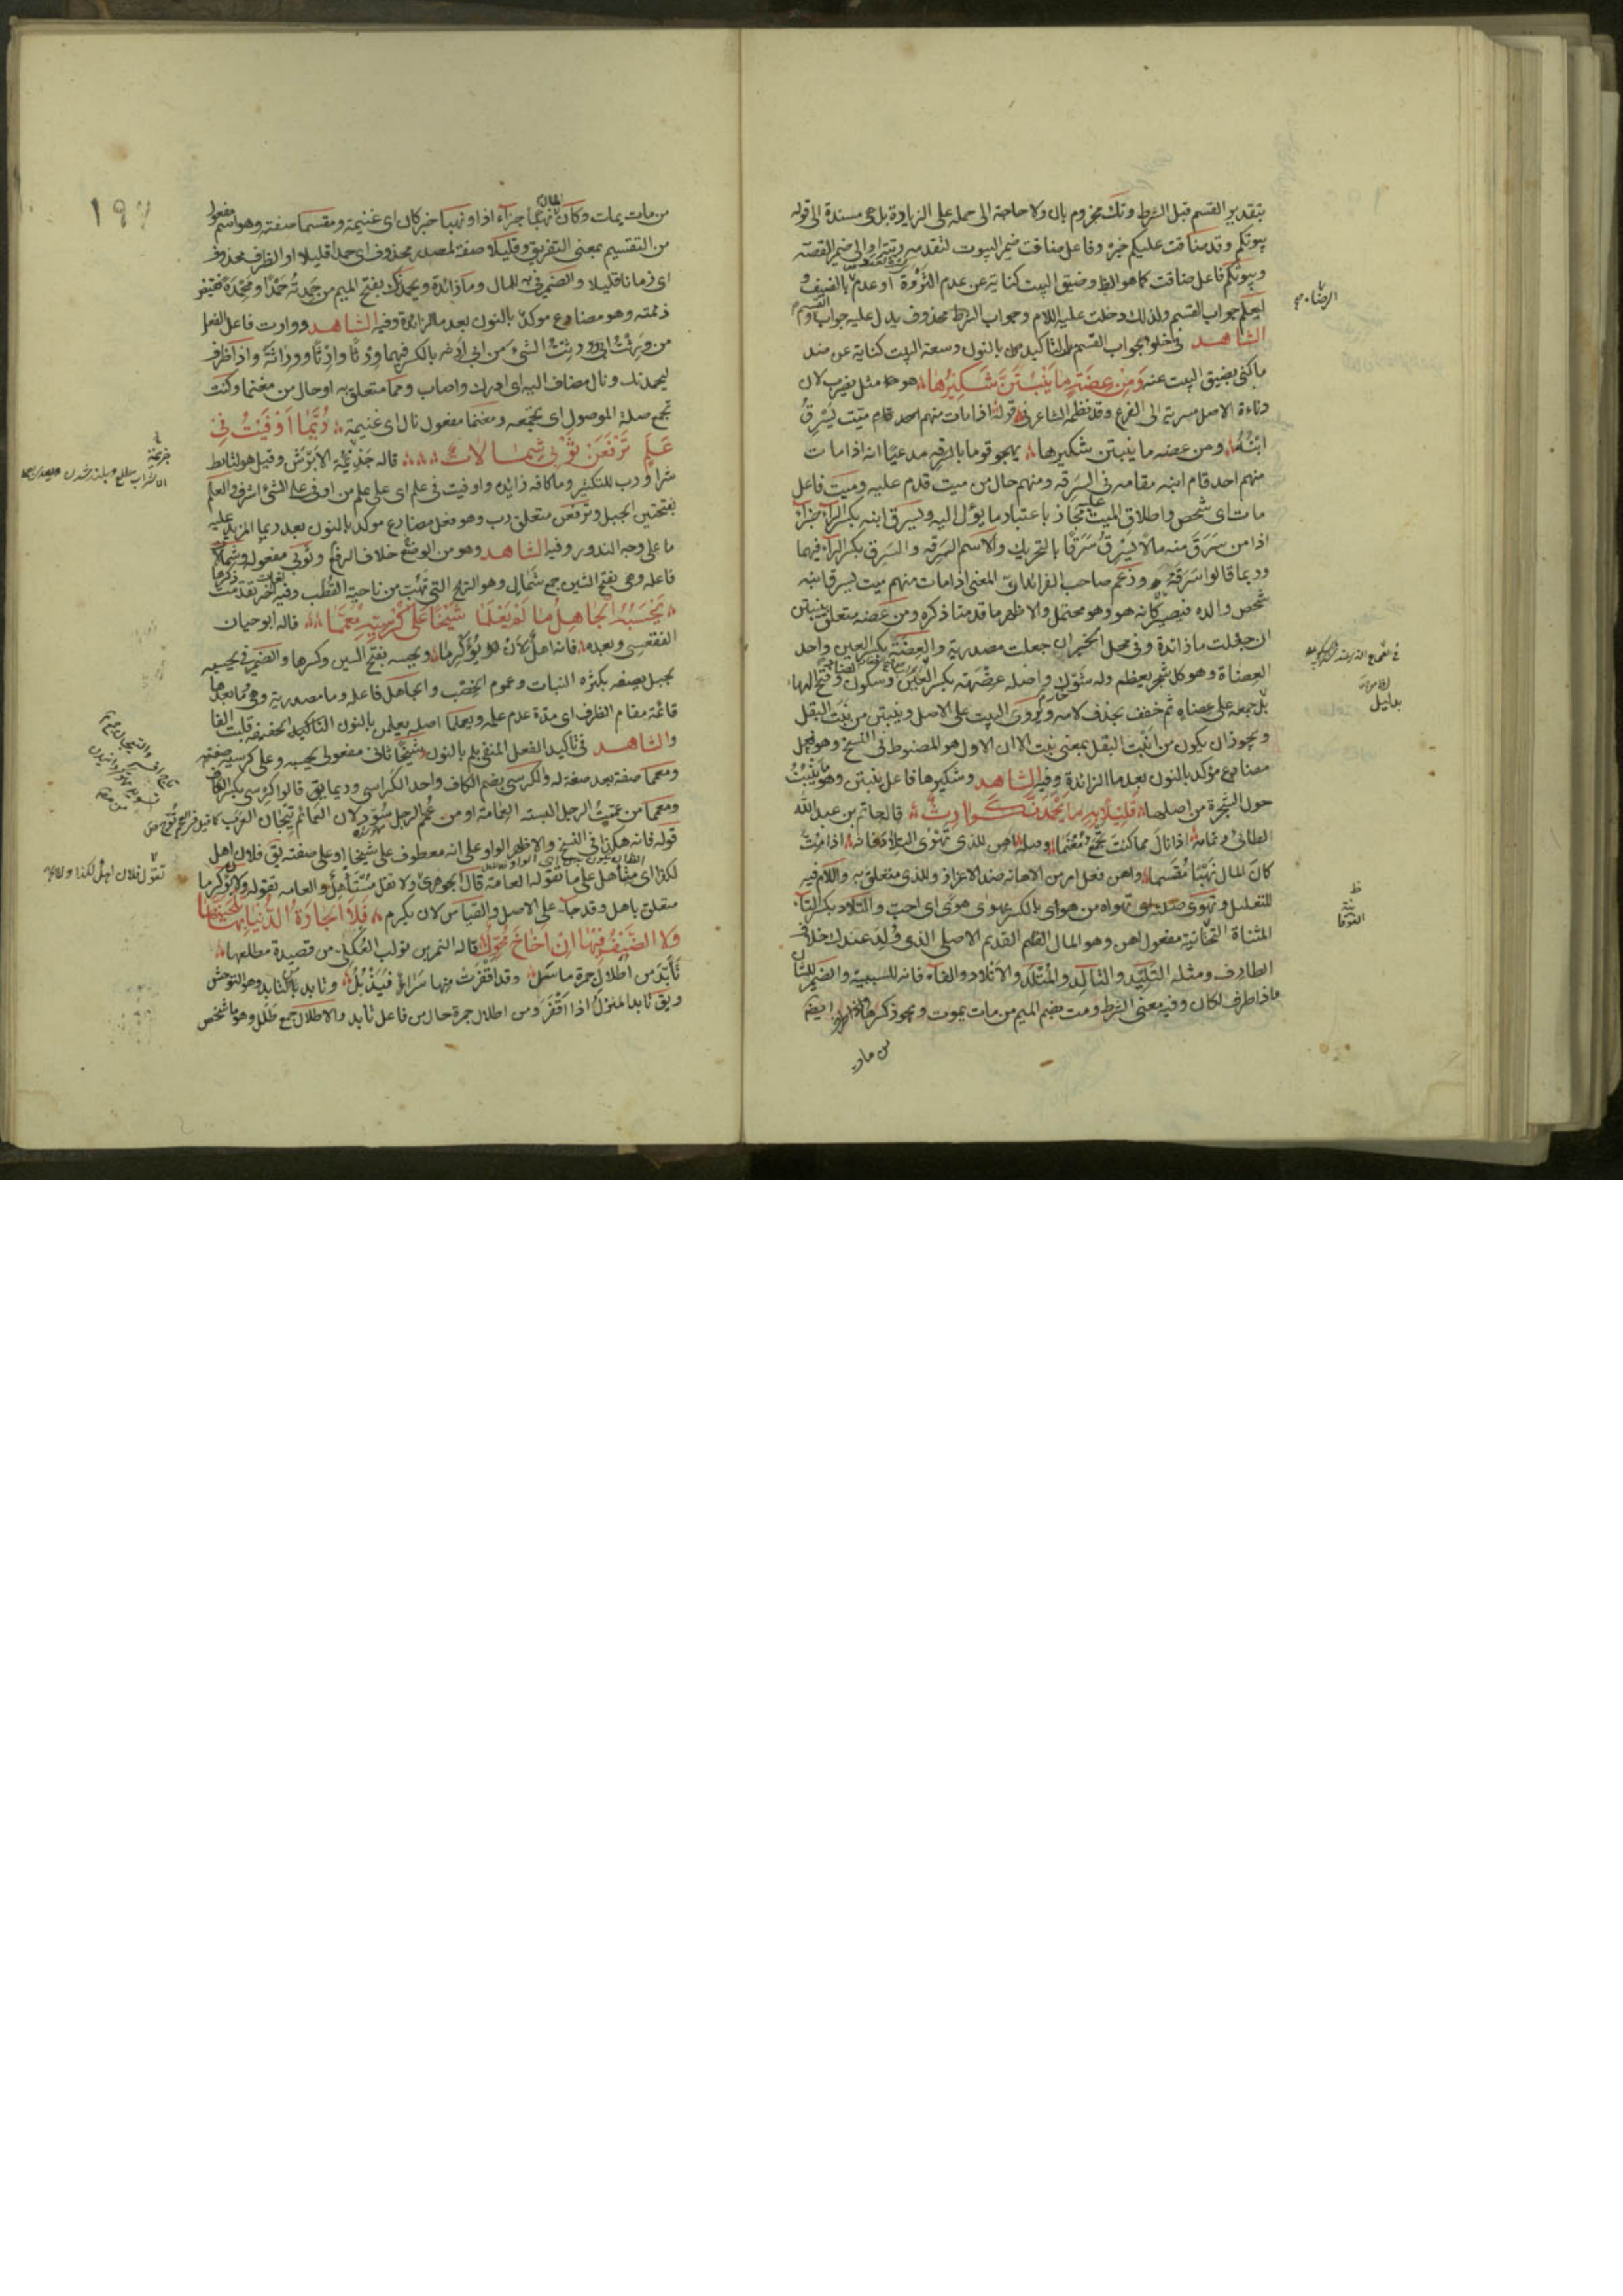 بتقدير القسم قبل الشرط وتك مجزوم بان ولا حاجة الى حمله على الزيادة بل هي مسندة الى قوله
بيوتكم وقد ضاقت عليكم خبره وفاعل ضاقت ضمير البيوت لتقدمه رتبة او الى ضمير القصة
وبيوتكم فاعل ضاقت كما هو الظ وضيق البيت كناية عن عدم الثروة او عدم بالضيف و
ليعلم جواب القسم ولذلك دخلت عليه اللام وجواب الشرط محذوف يدل عليه جواب القسم
الشاهد في خلو جواب القسم من التاكيد بالنون وسعة البيت كناية عن ضد
ما كنى بضيق البيت عنه ومن عضة ما ينبتن شكيرها هو مثل يضرب لان
دناءة الاصل مسرية الى الفرع وقد نظمه الشاعر في قوله اذا مات منهم احد قام ميت يسرق
ابنه ومن عضه ما ينبتن شكيرها يهجو قوما بالسرقة مدعيا انه اذا مات
منهم احد قام ابنه مقامه في السرقة ومنهم حال من ميت قدم عليه وميت فاعل
مات اى شخص واطلاق الميت عليه مجاز باعتبار ما يؤل اليه ويسرق ابنه بكسر الراء جزاء
اذا من سرق منه مالا يسرق سرقا بالتحريك والاسم السرقه والسرق بكسر الراء فيهما
وربما قالوا سرقة وزعم صاحب الفرائد ان المعنى اذا مات منهم ميت يسرق ابنه
شخص والده فيصير كانه هو وهو محتمل والاظهر ما قدمنا ذكره ومن عضه متعلق بينبتن
ان جعلت ما زائدة وفي محل الخبر ان جعلت مصدرية والعضة بكسر العين واحد
العضاة وهو كل شجر يعظم وله شوك واصله عضهة بكسر العين وسكون وفتح الهاء
بدليل جمعه على عضاه ثم خفف بحذف لامه ويروى البيت على الاصل وينبتن من نبت البقل
ويجوز ان يكون من انبت البقل بمعنى نبت الا ان الاول هو المضبوط في النسخ وهو فعل
مضارع مؤكد بالنون بعد ما الزائدة وفيه الشاهد وشكيرها فاعل ينبتن وهو ما ينبت
حول الشجرة من اصلها قليلا به ما يحمدنك وارث قاله حاتم بن عبد الله
الطائي وتمامه اذا نال مما كنت تجمع مغنما وصله اهن للذي تهوى التلاد فانه اذا مت
كان المال نهبا مقسما واهن فعل امر من الاهانه ضد الاعزاز وللذي متعلق به واللام فيه
للتعليل وتهوى صلته اى تهواه من هوى بالكسر يهوى هوى اى احب والتلاد بكسر التاء
المثناة التحتانية مفعول اهن وهو المال القديم الاصلي الذى ولد عندك خلاف
الطارف ومثله التليد والتالد والمتلد والاتلاد والفاء فانه للسببية والضمير للشان
واذا ظرف لكان وفيه معنى الشرط ومت بضم الميم من مات يموت ويجوز كسرها
من مات
الفوقا
بدليل
١٩٧
من مات يمات وكان المال نهبا جزاء اذا ونهبا خبر كان اى غنيمة ومقسما صفته وهو اسم مفعول
من التقسيم بمعنى التفريق وقليلا صفة لمصدر محذوف اى حمدا قليلا او الظرف محذوف
اى زمانا قليلا والضمير في به للمال وما زائدة ويحمدنك بفتح الميم من حمدته حمدا ومحمدة نقيض
ذممته وهو مضارع موكد بالنون بعد ما الزائدة وفيه الشاهد ووارث فاعل الفعل
من ورثت ابى وورثت الشئ من ابى ارثه بالكسر فيهما ورثا وارثا ووراثة واذا ظرف
ليحمدنك ونال مضاف اليه اى ادرك واصاب ومما متعلق به او حال من مغنما وكنت
تجمع صلة الموصول اى تجمعه ومغنما مفعول نال اى غنيمة ربما اوفيت في
علم ترفعن ثوبي شمالات قاله جذيمة الابرش وقيل هو لتابط
شرا ورب للتكثير وما كافه زايده واوفيت في علم اى على علم من اوفى على الشئ اشرف والعلم
بفتحتين الجبل وترفعن متعلق رب وهو فعل مضارع موكد بالنون بعد ربما المزيد عليه
ما على وجه الندور وفيه الشاهد وهو من الرفع خلاف الوضع وثوبي مفعوله وشمالات
فاعله وهي بفتح الشين جمع شمال وهو الريح التي تهب من ناحية القطب وفيه لغات اخر تقدمت ذكرها
يحسبه الجاهل ما لم يعلما شيخا على كرسيه معمما قاله ابو حيان
الفقعسي وبعده فانه اهل لان يؤكرما ويحسبه بفتح السين وكسرها والضمير في يحسبه
بجبل يصفه بكثرة النبات وعموم الخصب والجاهل فاعله وما مصدرية وهي وما بعدها
قائمة مقام الظرف اى مدة عدم علمه ويعلما اصله يعلمن بالنون التاكيد الخفيفة قلبت الفا
والشاهد في تاكيد الفعل المنفي بلم بالنون وشيخا ثاني مفعولي يحسبه وعلى كرسيه صفته
ومعمما صفة بعد صفة له والكرسي بضم الكاف واحد الكراسي وربما يق قالوا كرسي بكسر الكاف
ومعمما من عممت الرجل البسته العمامة او من عمم الرجل سود لان العمائم تيجان العرب كما قيل في العجم توج من
قوله فانه هكذا في النسخ والاظهر الواو على انه معطوف على شيخا او على صفته يق فلان اهل
لكذا اى مستأهل على ما تقوله العامة قال الجوهري ولا تقل مستأهل والعامه تقوله ولان يؤكرما
متعلق باهل وقد جاء على الاصل والقياس لان يكرم فلا الجارة الدنيا بها تلحينها
ولا الضيف فيها ان اناخ محول قاله النمر بن تولب العكلي من قصيدة مطلعها
تأبد من اطلال جمرة مأسل وقد اقفرت منها سراء فيذبل وتابد بالتابيد وهو التوحش
ويق تابد المنزل اذا اقفر ومن اطلال جمرة حال من فاعل تابد والاطلال جمع طلل وهو ما شخص
جذيمة
تقول فلان اهل لكذا ولا تقل